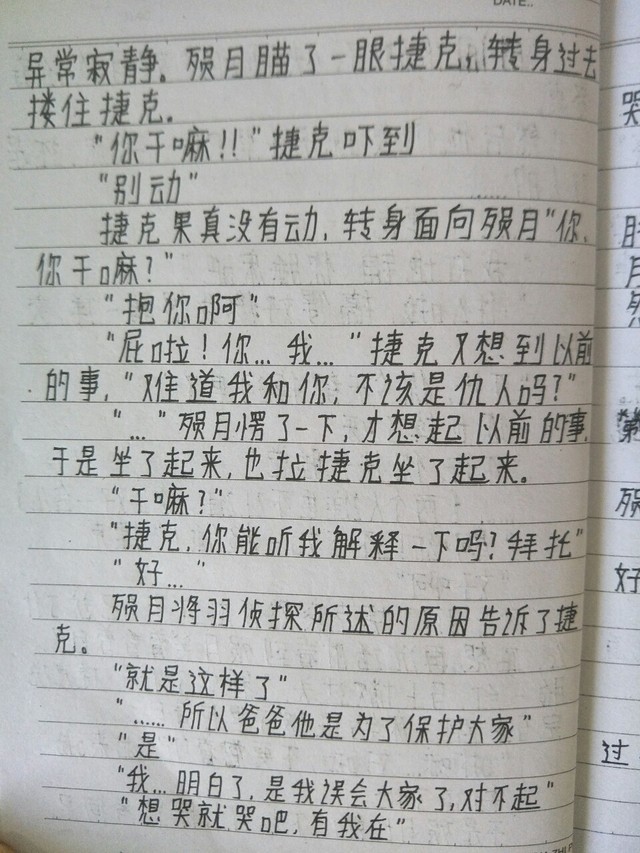 DATE..
异常寂静。殒月瞄了一眼捷克,转身过去
搂住捷克。
"你干嘛!!"捷克吓到
"别动"
捷克果真没有动,转身面向殒月"你,
你干嘛?"
"抱你啊"
"屁啦!你…我…"捷克又想到以前
的事,"难道我和你,不该是仇人吗?"
"…"殒月愣了一下,才想起以前的事,
于是坐了起来,也拉捷克坐了起来。
"干嘛?"
"捷克,你能听我解释一下吗?拜托"
"好…"
殒月将羽侦探所述的原因告诉了捷
克。
"就是这样了"
"……所以爸爸他是为了保护大家"
"是"
"我…明白了,是我误会大家了,对不起"
"想哭就哭吧,有我在"
哭
月
殒
好
过